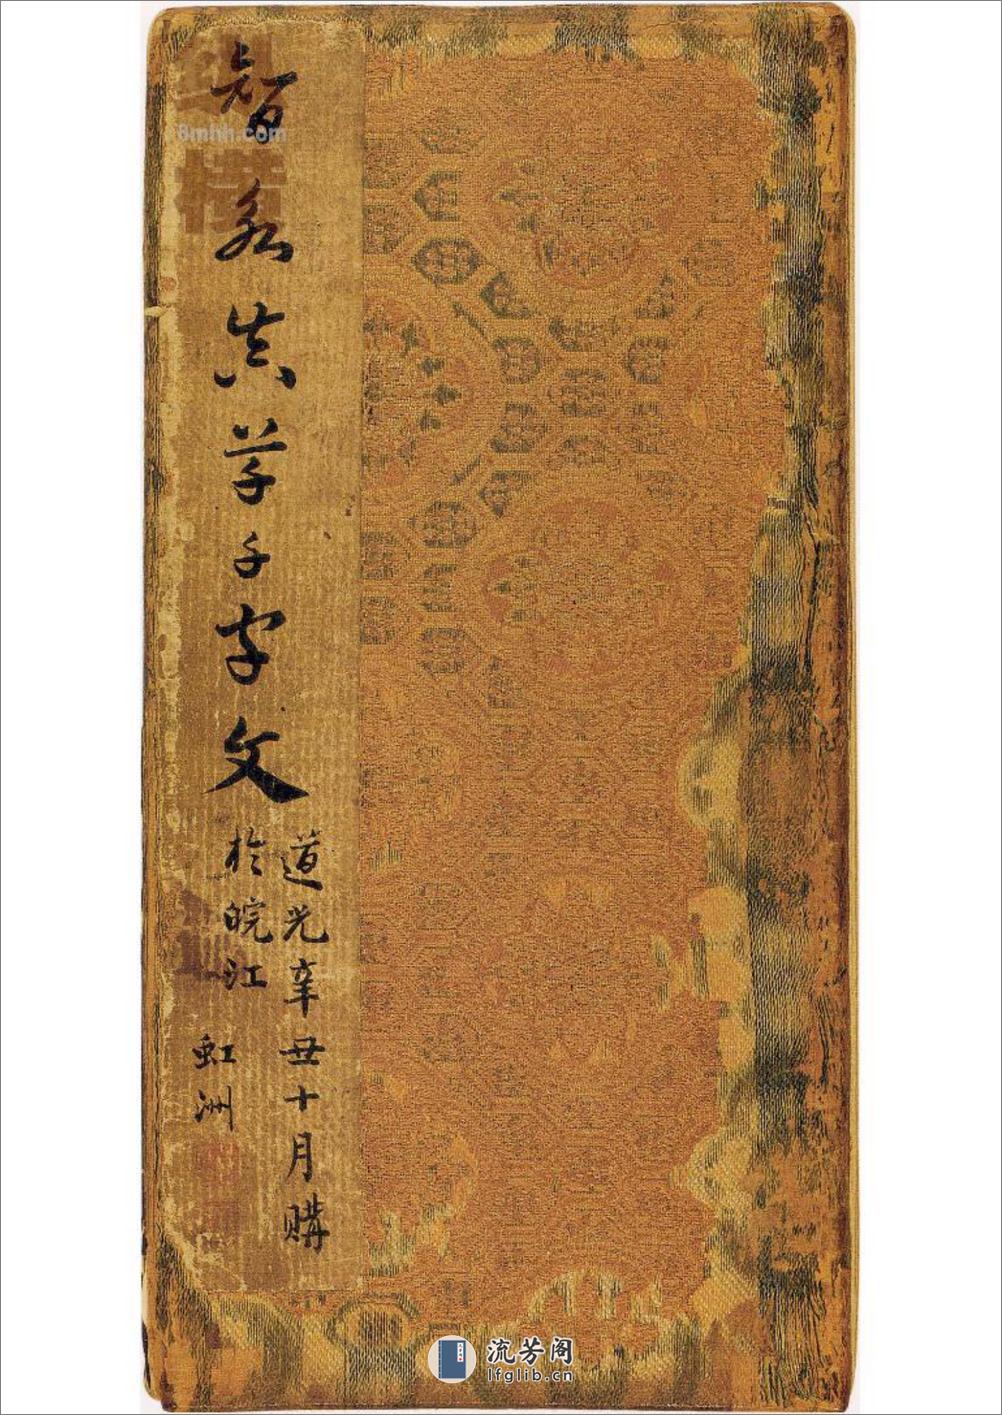 智永真草千字文
道光辛丑十月購
於皖江
虹洲
8mhh.com
橫
流芳阁
lfglib.cn